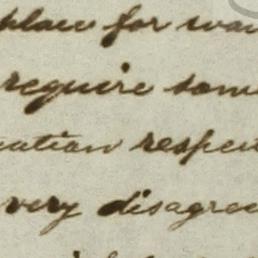 place for wan
require som
cation respect
very disagree